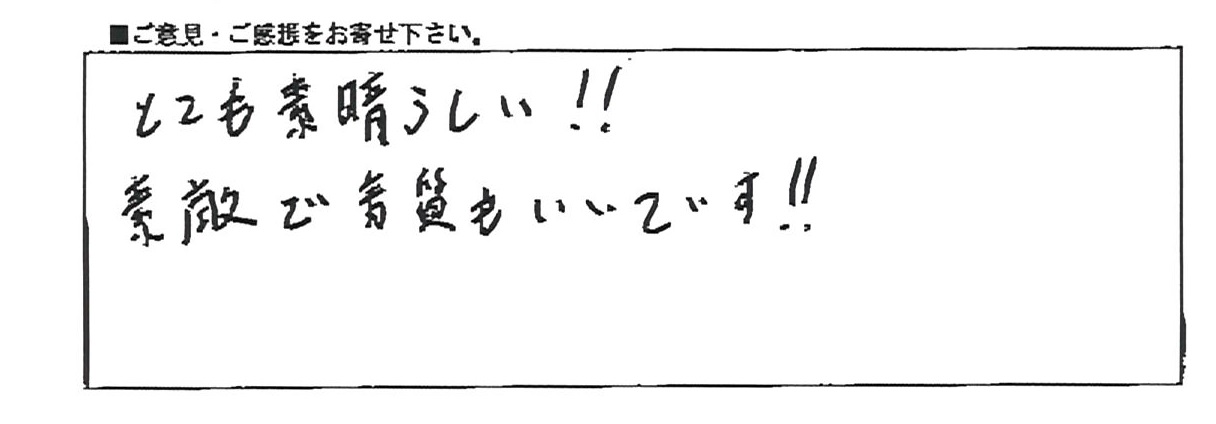 ■ご意見・ご感想をお寄せ下さい。
とても素晴らしい!!
素敵で音質もいいです!!